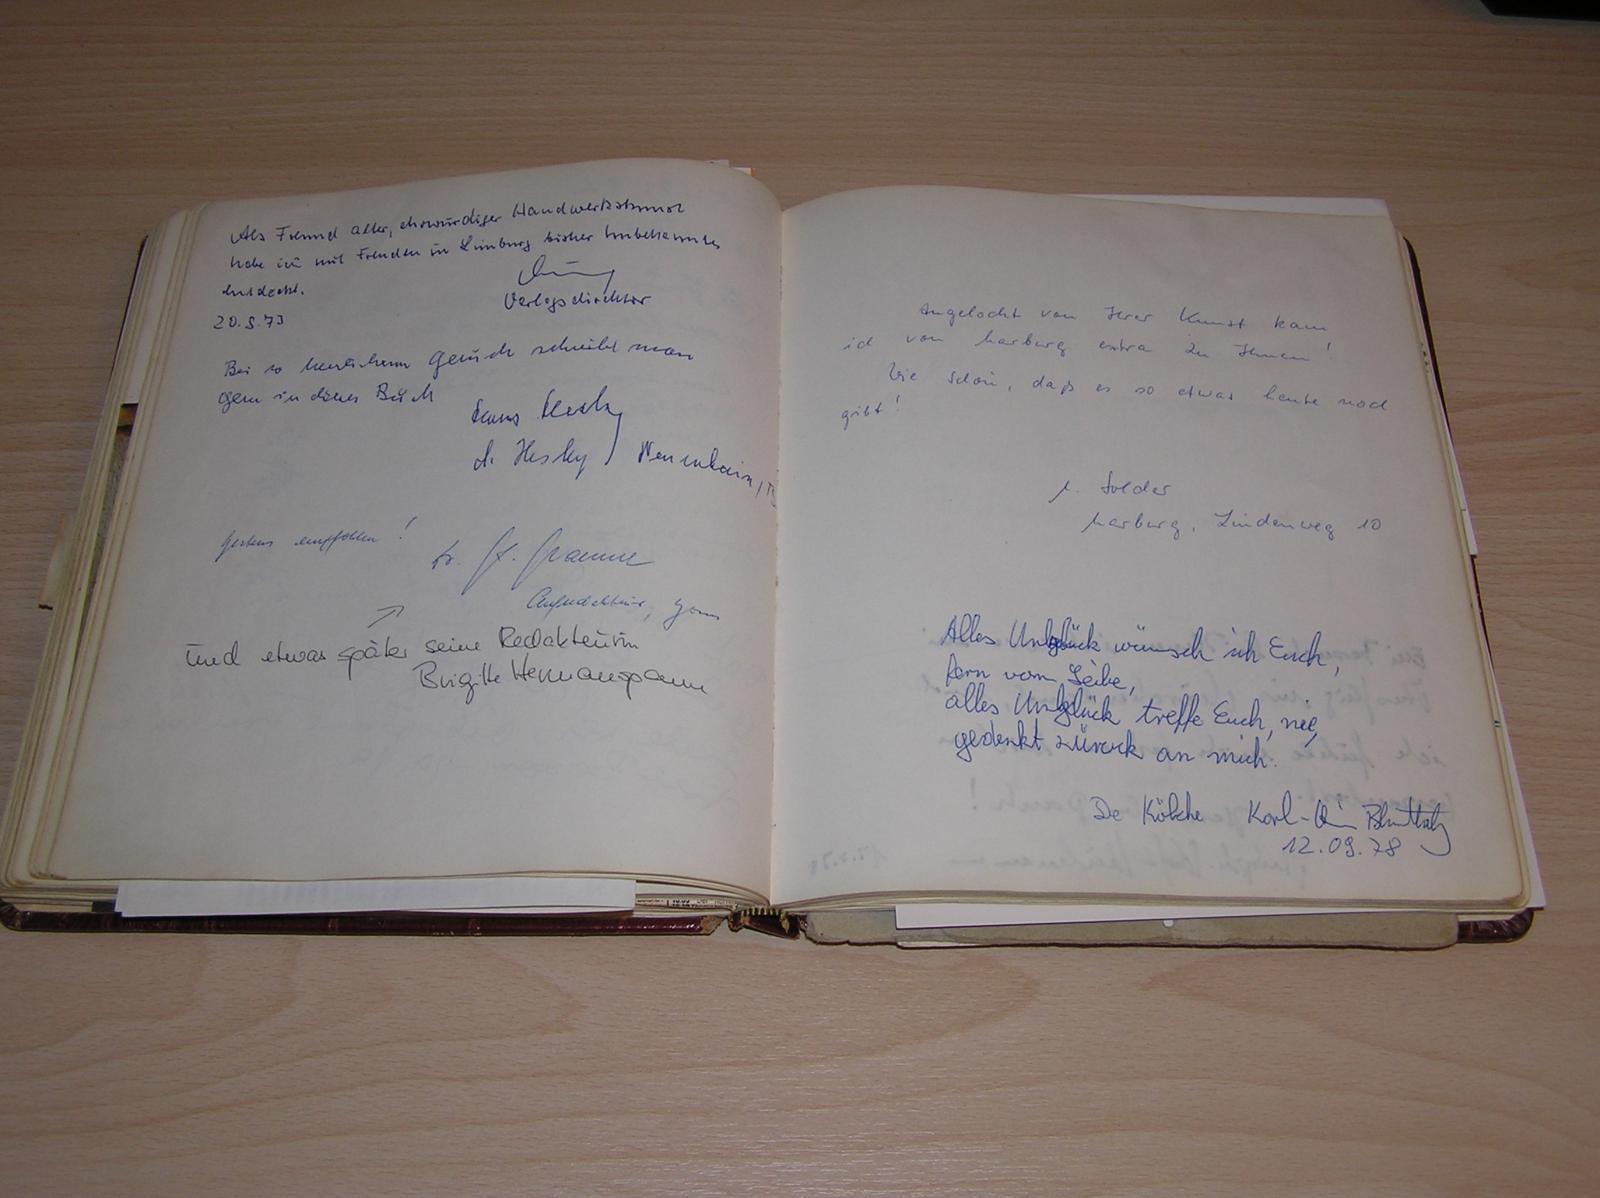 Als Freund alter, ehrwürdiger Handwerkskunst
habe ich mit Freuden in Limburg bisher Unbekanntes
entdeckt.
Verlagsdirektor
20.5.73
Bei so herrlichem Geruch schreibt man
gern in dieses Buch
Hans Hesky
d. Hesky
Bestens empfohlen!
Dr.
und etwas später seine Redakteurin
Brigitte
Angelockt von Ihrer Kunst kam
ich von Marburg extra zu Ihnen!
Wie schön, daß es so etwas heute noch
gibt!
Marburg, Lindenweg 10
Alles Unglück wünsch ich Euch,
fern vom Leibe,
alles Unglück treffe Euch, nie,
gedenkt zurück an mich.
De Kölsche Karl-
12.09.78